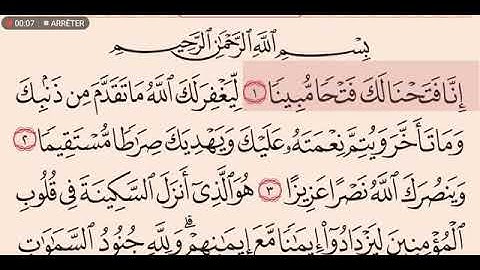 00:07 ARRÊTER
بِسْمِ اللَّهِ الرَّحْمَٰنِ الرَّحِيمِ
إِنَّا فَتَحْنَا لَكَ فَتْحًا مُّبِينًا ١ لِّيَغْفِرَ لَكَ اللَّهُ مَا تَقَدَّمَ مِن ذَنۢبِكَ
وَمَا تَأَخَّرَ وَيُتِمَّ نِعْمَتَهُۥ عَلَيْكَ وَيَهْدِيَكَ صِرَٰطًا مُّسْتَقِيمًا ٢
وَيَنصُرَكَ اللَّهُ نَصْرًا عَزِيزًا ٣ هُوَ الَّذِىٓ أَنزَلَ السَّكِينَةَ فِى قُلُوبِ
الْمُؤْمِنِينَ لِيَزْدَادُوٓا۟ إِيمَٰنًا مَّعَ إِيمَٰنِهِمْ ۗ وَلِلَّهِ جُنُودُ السَّمَٰوَٰتِ